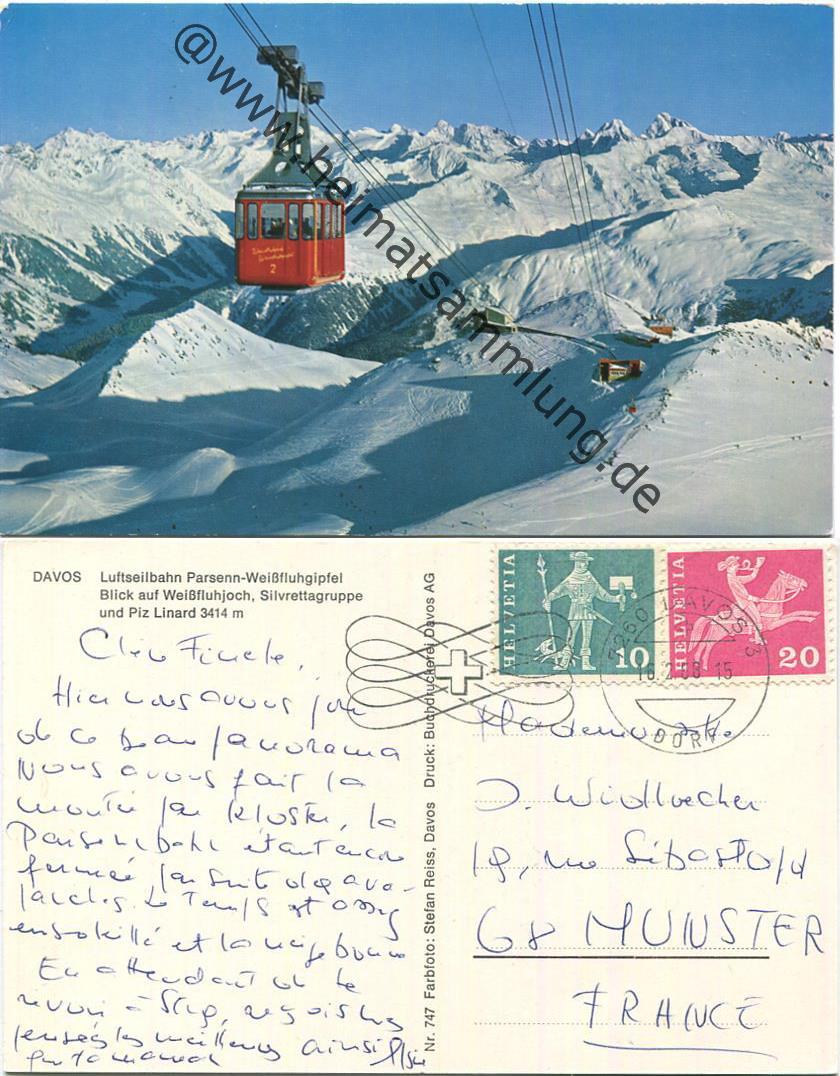 @www.heimatsammlung.de
2
DAVOS Luftseilbahn Parsenn-Weißfluhgipfel
Blick auf Weißfluhjoch, Silvrettagruppe
und Piz Linard 3414 m
Nr. 747 Farbfoto: Stefan Reiss, Davos Druck: Buchdruckerei Davos AG
HELVETIA 10
HELVETIA 20
7260 DAVOS 3
16.2.68 15
DORF
Hier nous avons joui
de ce beau panorama
Nous avons fait la
montée par Kloster, la
Parsennbahn étant encore
fermée par suite des ava-
lanches. Le temps est assez
ensoleillé et la neige bonne
En attendant de te
revoir à Stbg, reçois les
pensées les meilleures ainsi
que ta maman
J. Widloecher
19, rue
68 MUNSTER
FRANCE